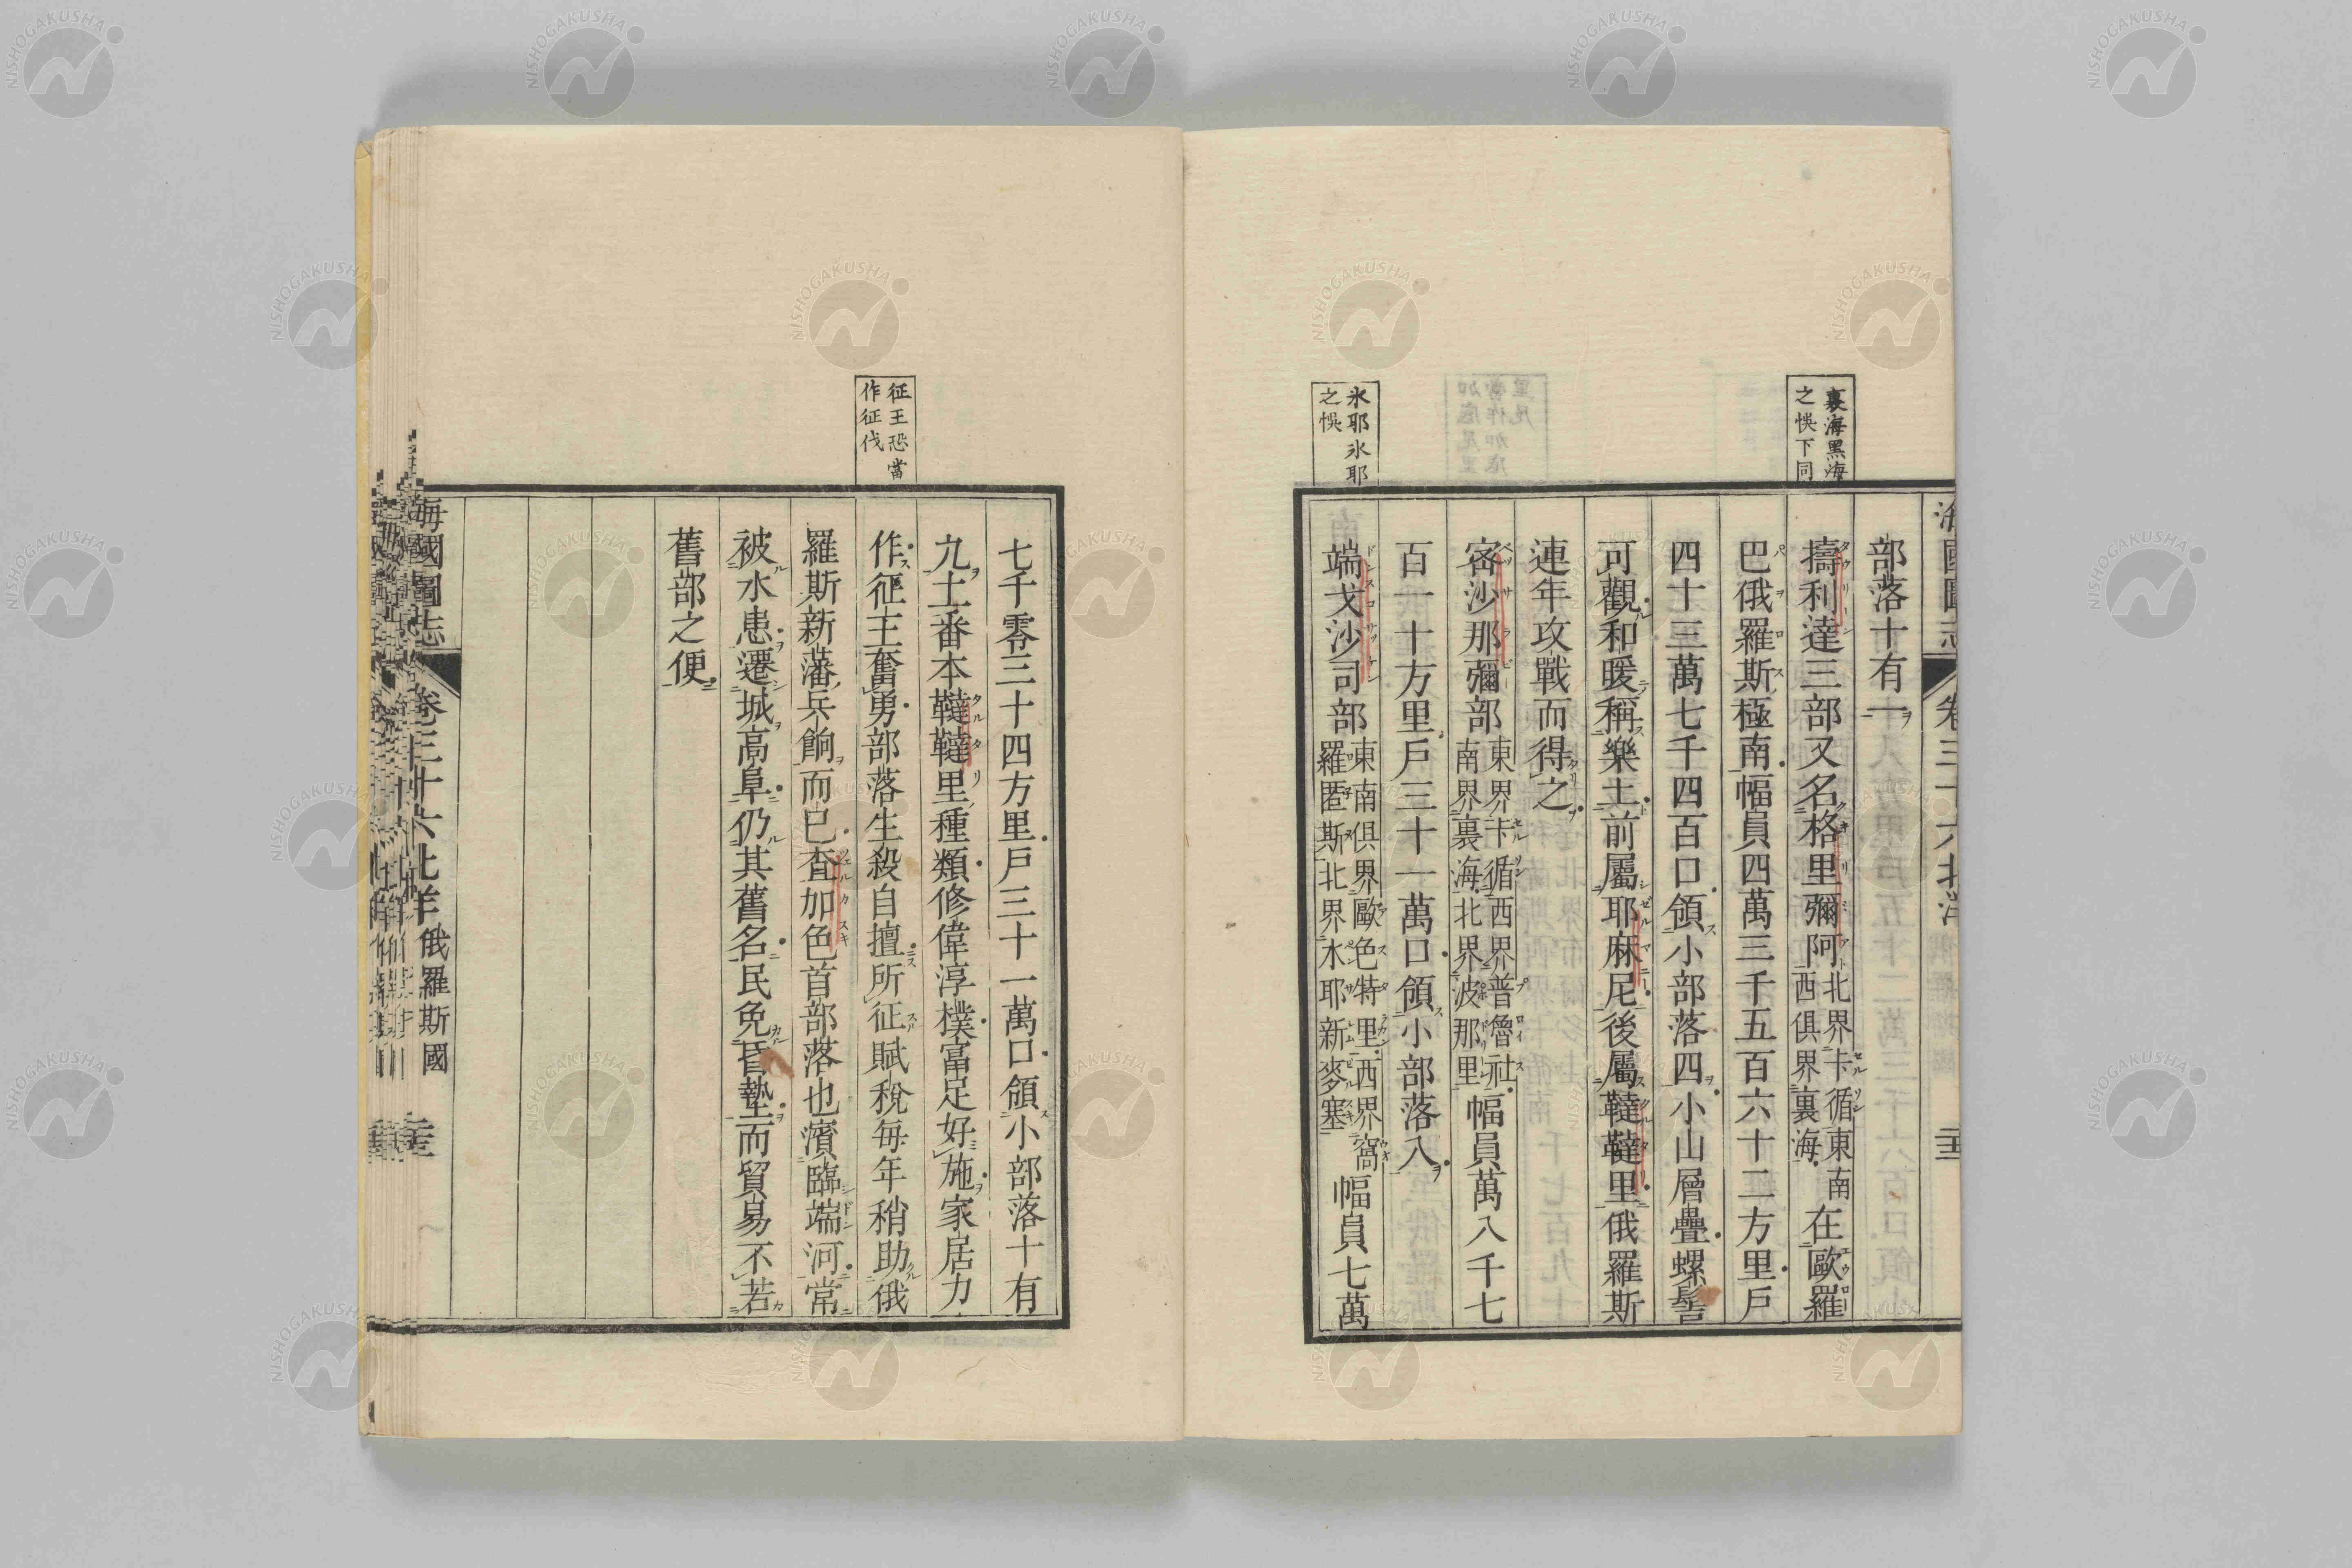 裏海黑海
之悞下同
氷耶氷耶
之悞
海國圖志
卷三十六北洋
部落十有一
擣利達三部又名格里彌阿北界卡循東南
西俱界裏海
在歐羅
巴俄羅斯極南幅員四萬三千五百六十二方里戶
四十三萬七千四百口領小部落四小山層疊螺髻
可觀和暖稱樂土前屬耶麻尼後屬韃韃里俄羅斯
連年攻戰而得之
密沙那彌部東界卡循西界普魯社
南界裏海北界波那里
幅員萬八千七
百一十方里戶三十一萬口領小部落八
端戈沙司部東南俱界歐色特里西界窩
羅匿斯北界水耶新麥塞
幅員七萬
征王恐當
作征伐
七千零三十四方里戶三十一萬口領小部落十有
九土番本韃韃里種類修偉淳樸富足好施家居力
作征王奮勇部落生殺自擅所征賦稅每年稍助俄
羅斯新藩兵餉而已查加色首部落也濱臨端河常
被水患遷城高阜仍其舊名民免昏墊而貿易不若
舊部之便
海國圖志
卷三十六北洋
俄羅斯國
NISHOGAKUSHA